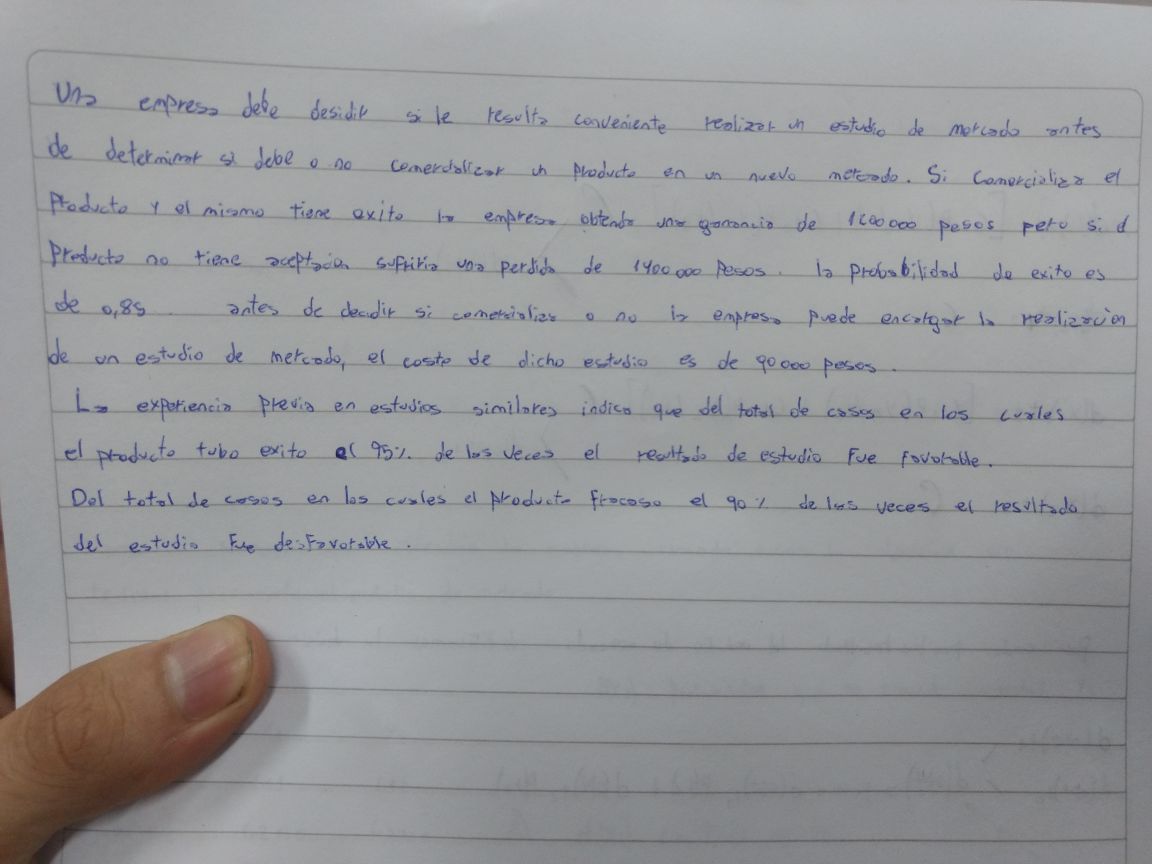 Una empresa debe desidir si le resulta conveniente realizar un estudio de mercado antes
de determinar si debe o no comercializar un producto en un nuevo mercado. Si comercializa el
Producto y el mismo tiene exito la empresa obtendra una ganancia de pesos pero si el
Producto no tiene aceptacion sufriria una perdida de 1400 000 Pesos. la probabilidad de exito es
de 0,85 antes de decidir si comersializa o no la empresa puede encargar la realizacion
de un estudio de mercado, el costo de dicho estudio es de 90 000 pesos.
La experiencia previa en estudios similares indica que del total de casos en los cuales
el producto tubo exito el 95% de las veces el resultado de estudio fue favorable.
Del total de casos en los cuales el producto fracaso el 90% de las veces el resultado
del estudio fue desfavorable.